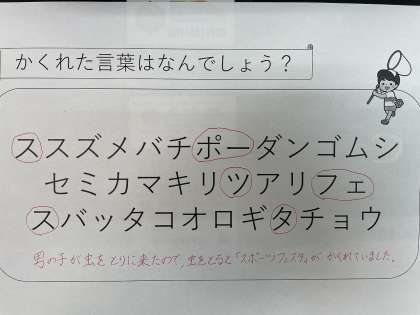 かくれた言葉はなんでしょう？
ススズメバチポーダンゴムシ
セミカマキリツアリフェ
スバッタコオロギタチョウ
男の子が虫をとりに来たので、虫をとると「スポーツフェスタ」が かくれていました。